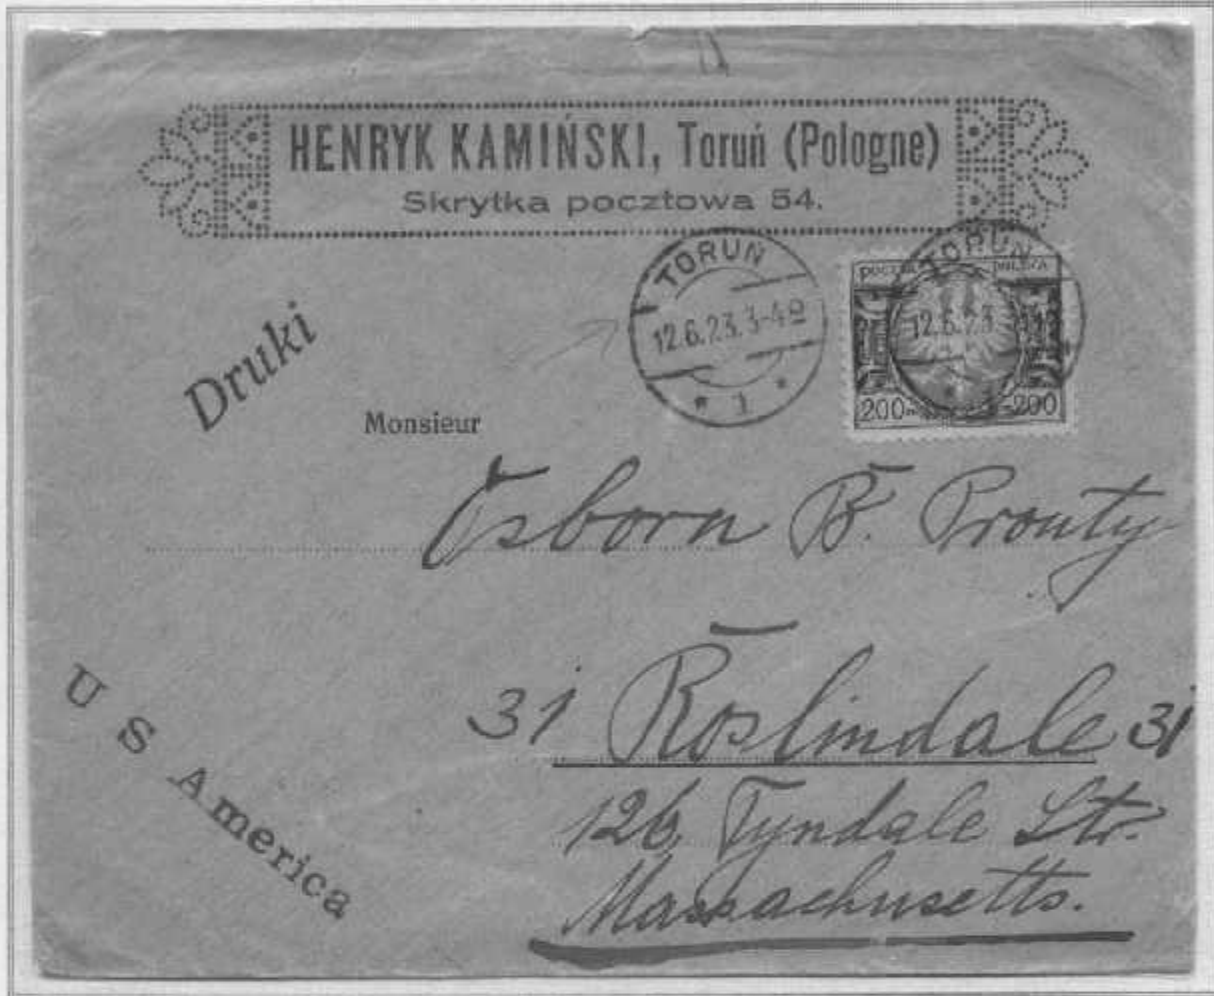 HENRYK KAMIŃSKI, Toruń (Pologne)
Skrytka pocztowa 54.
TORUŃ
12.6.23.3-4
* 1 *
TORUŃ
12.6.23
POCZTA POLSKA
200 200
Druki
Monsieur
Osborn B. Prouty
31 Roslindale 31
126, Tyndale Str.
Massachusetts.
U S America